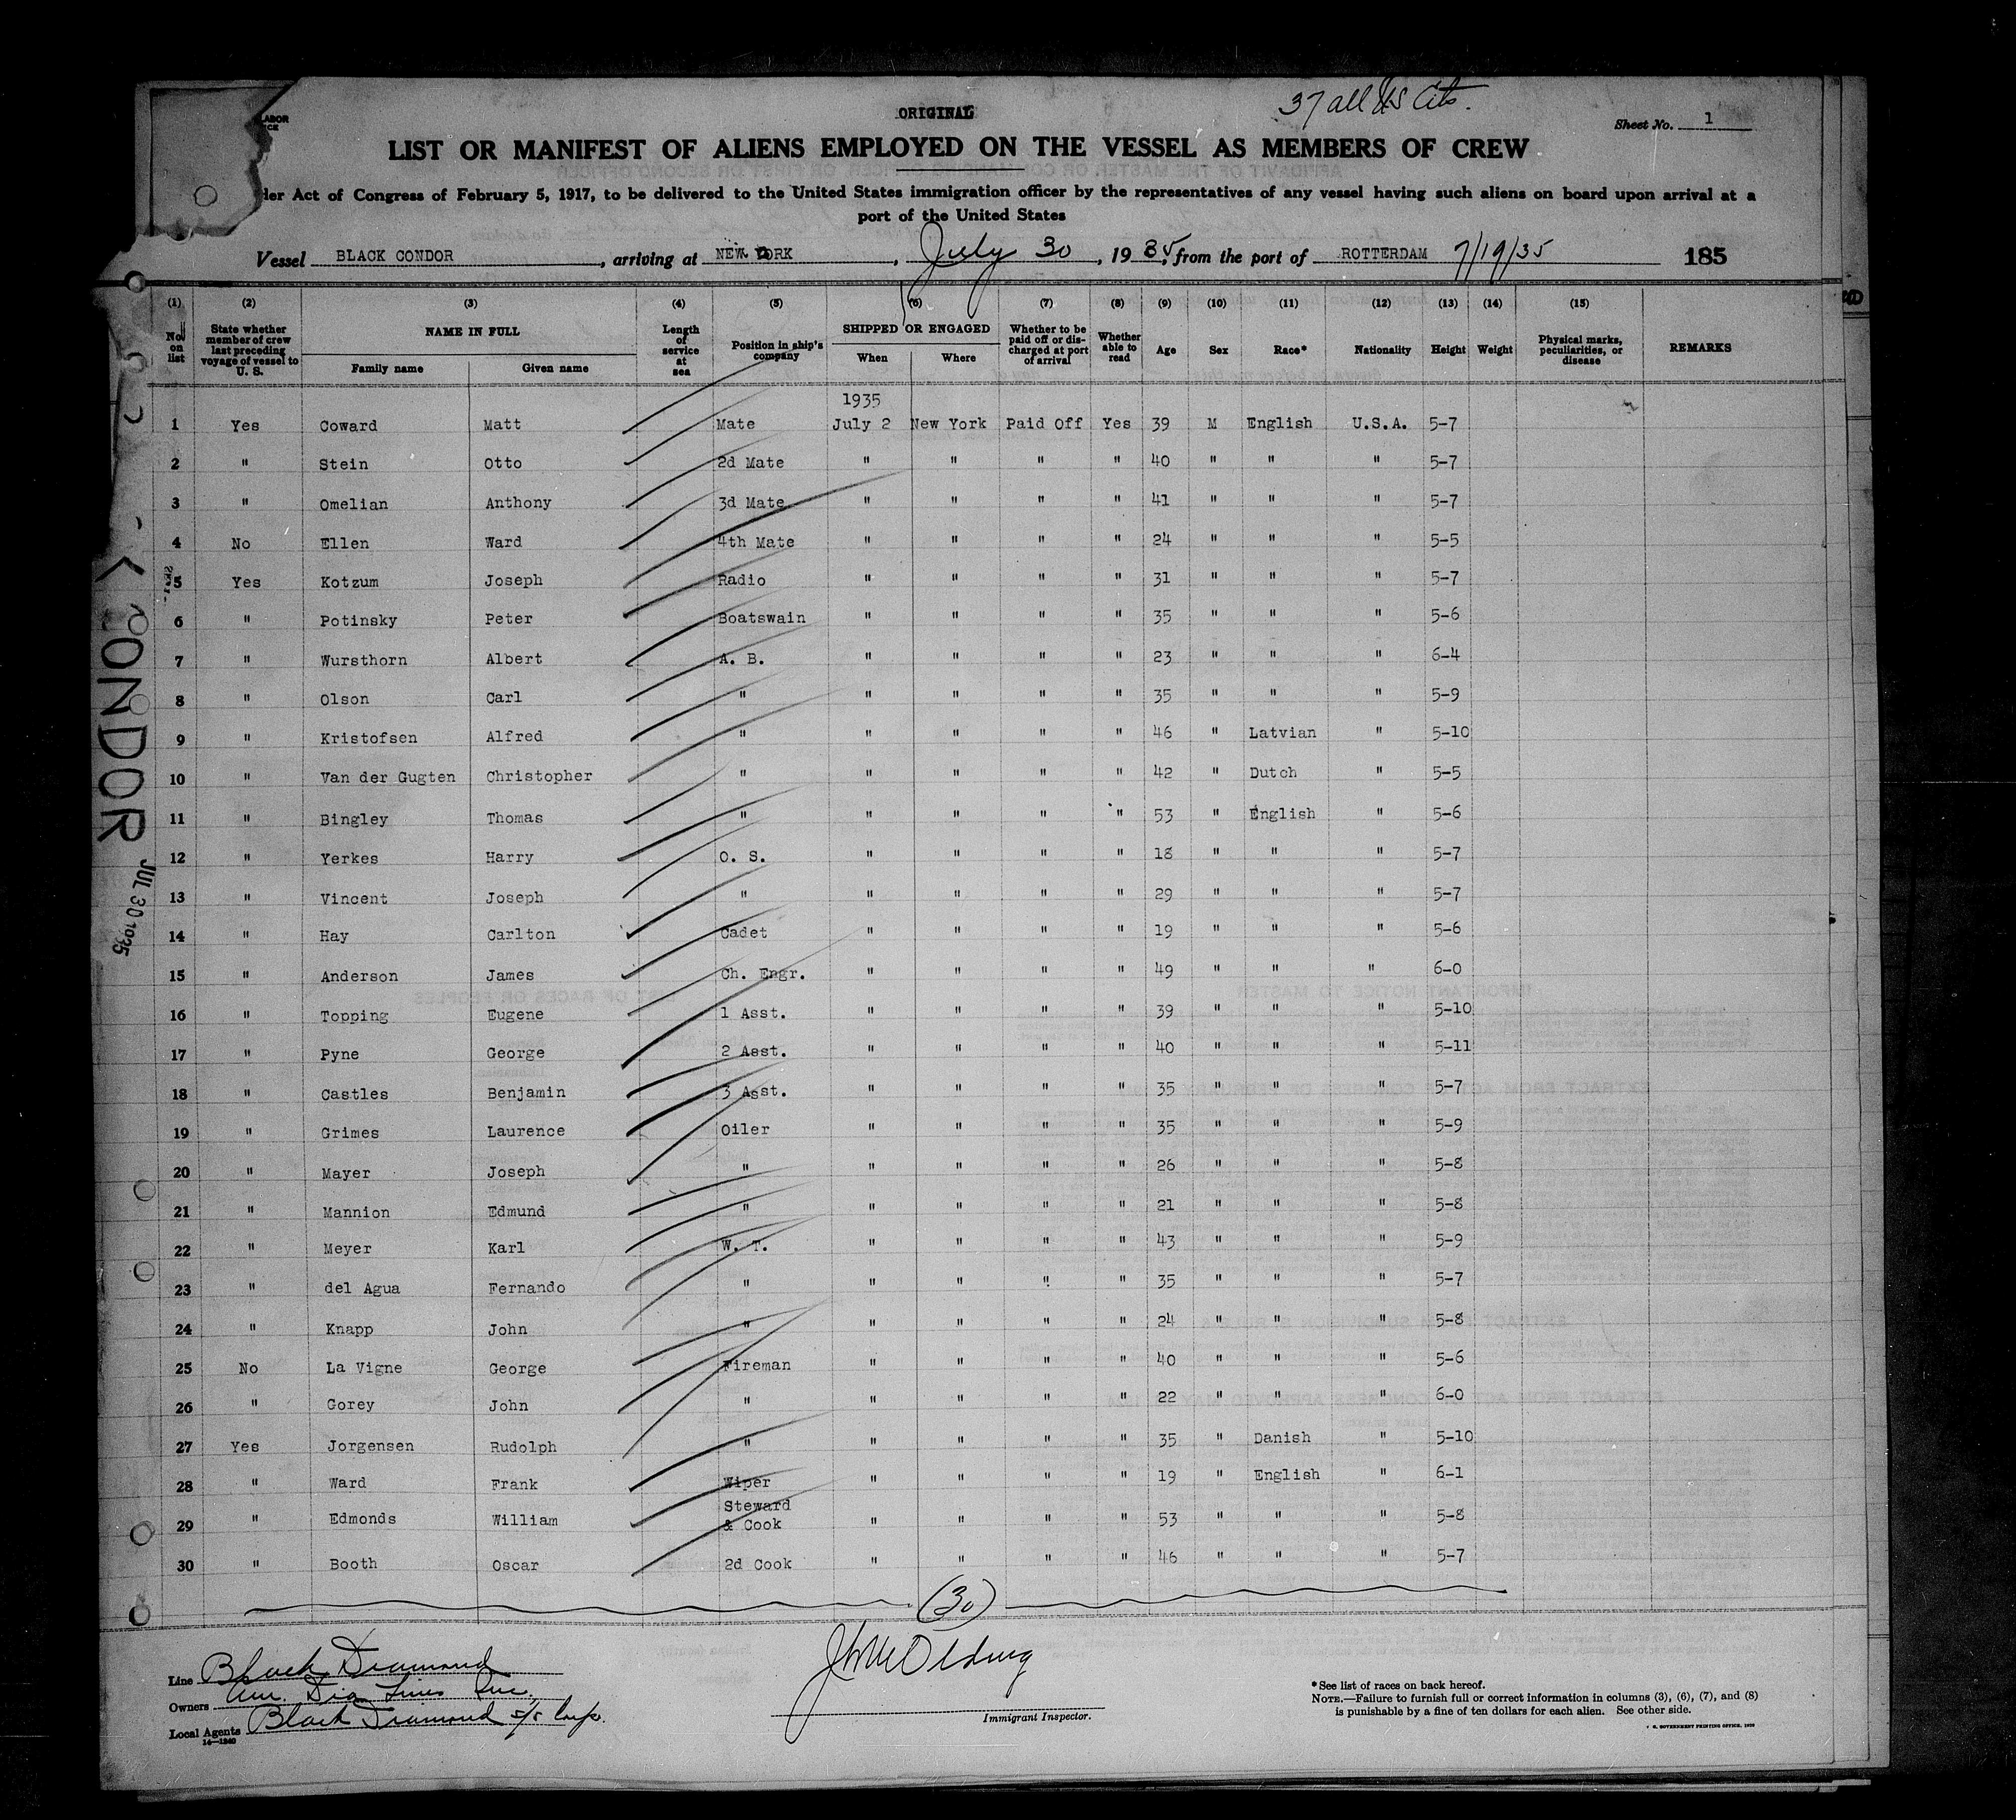 ORIGINAL
37 all US Cits.
Sheet No. 1
LABOR
CE
LIST OR MANIFEST OF ALIENS EMPLOYED ON THE VESSEL AS MEMBERS OF CREW
der Act of Congress of February 5, 1917, to be delivered to the United States immigration officer by the representatives of any vessel having such aliens on board upon arrival at a
port of the United States
Vessel BLACK CONDOR, arriving at NEW YORK, July 30, 1935, from the port of ROTTERDAM 7/19/35 185
(1) (2) (3) (4) (5) (6) (7) (8) (9) (10) (11) (12) (13) (14) (15)
No. on list State whether member of crew last preceding voyage of vessel to U. S. NAME IN FULL Family name Given name Length of service at sea Position in ship's company SHIPPED OR ENGAGED When Where Whether to be paid off or discharged at port of arrival Whether able to read Age Sex Race* Nationality Height Weight Physical marks, peculiarities, or disease REMARKS
1935
1 Yes Coward Matt Mate July 2 New York Paid Off Yes 39 M English U.S.A. 5-7
2 " Stein Otto 2d Mate " " " " 40 " " " 5-7
3 " Omelian Anthony 3d Mate " " " " 41 " " " 5-7
4 No Ellen Ward 4th Mate " " " " 24 " " " 5-5
5 Yes Kotzum Joseph Radio " " " " 31 " " " 5-7
6 " Potinsky Peter Boatswain " " " " 35 " " " 5-6
7 " Wursthorn Albert A. B. " " " " 23 " " " 6-4
8 " Olson Carl " " " " " 35 " " " 5-9
9 " Kristofsen Alfred " " " " " 46 " Latvian " 5-10
10 " Van der Gugten Christopher " " " " " 42 " Dutch " 5-5
11 " Bingley Thomas " " " " " 53 " English " 5-6
12 " Yerkes Harry O. S. " " " " 18 " " " 5-7
13 " Vincent Joseph " " " " " 29 " " " 5-7
14 " Hay Carlton Cadet " " " " 19 " " " 5-6
15 " Anderson James Ch. Engr. " " " " 49 " " " 6-0
16 " Topping Eugene 1 Asst. " " " " 39 " " " 5-10
17 " Pyne George 2 Asst. " " " " 40 " " " 5-11
18 " Castles Benjamin 3 Asst. " " " " 35 " " " 5-7
19 " Grimes Laurence Oiler " " " " 35 " " " 5-9
20 " Mayer Joseph " " " " " 26 " " " 5-8
21 " Mannion Edmund " " " " " 21 " " " 5-8
22 " Meyer Karl W. T. " " " " 43 " " " 5-9
23 " del Agua Fernando " " " " " 35 " " " 5-7
24 " Knapp John " " " " " 24 " " " 5-8
25 No La Vigne George Fireman " " " " 40 " " " 5-6
26 " Gorey John " " " " " 22 " " " 6-0
27 Yes Jorgensen Rudolph " " " " " 35 " Danish " 5-10
28 " Ward Frank Wiper " " " " 19 " English " 6-1
29 " Edmonds William Steward & Cook " " " " 53 " " " 5-8
30 " Booth Oscar 2d Cook " " " " 46 " " " 5-7
(30)
CONDOR
JUL 30 1935
Line Black Diamond
Owners Am. Dia Lines Inc.
Local Agents Black Diamond S/S Corp.
14—1240
Immigrant Inspector.
*See list of races on back hereof.
NOTE.—Failure to furnish full or correct information in columns (3), (6), (7), and (8)
is punishable by a fine of ten dollars for each alien. See other side.
GOVERNMENT PRINTING OFFICE